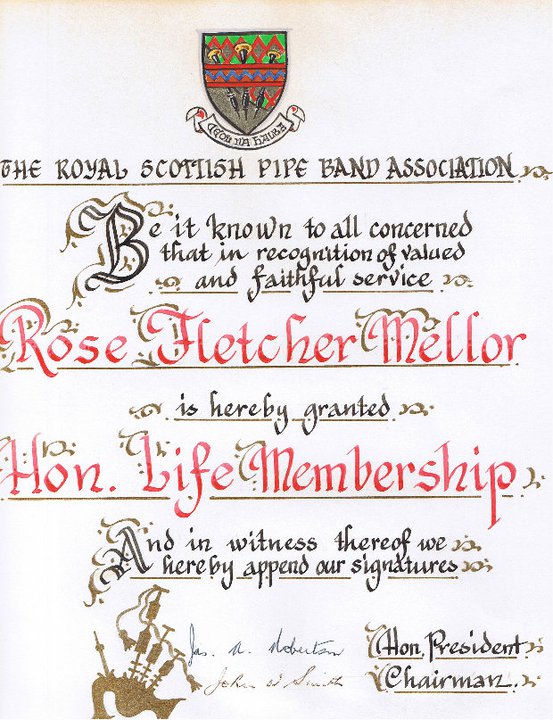 CEOL NA HALBA
THE ROYAL SCOTTISH PIPE BAND ASSOCIATION
Be it known to all concerned
that in recognition of valued
and faithful service
Rose Fletcher Mellor
is hereby granted
Hon. Life Membership
And in witness thereof we
hereby append our signatures
Jas. Robertson Hon. President
John Smith Chairman.